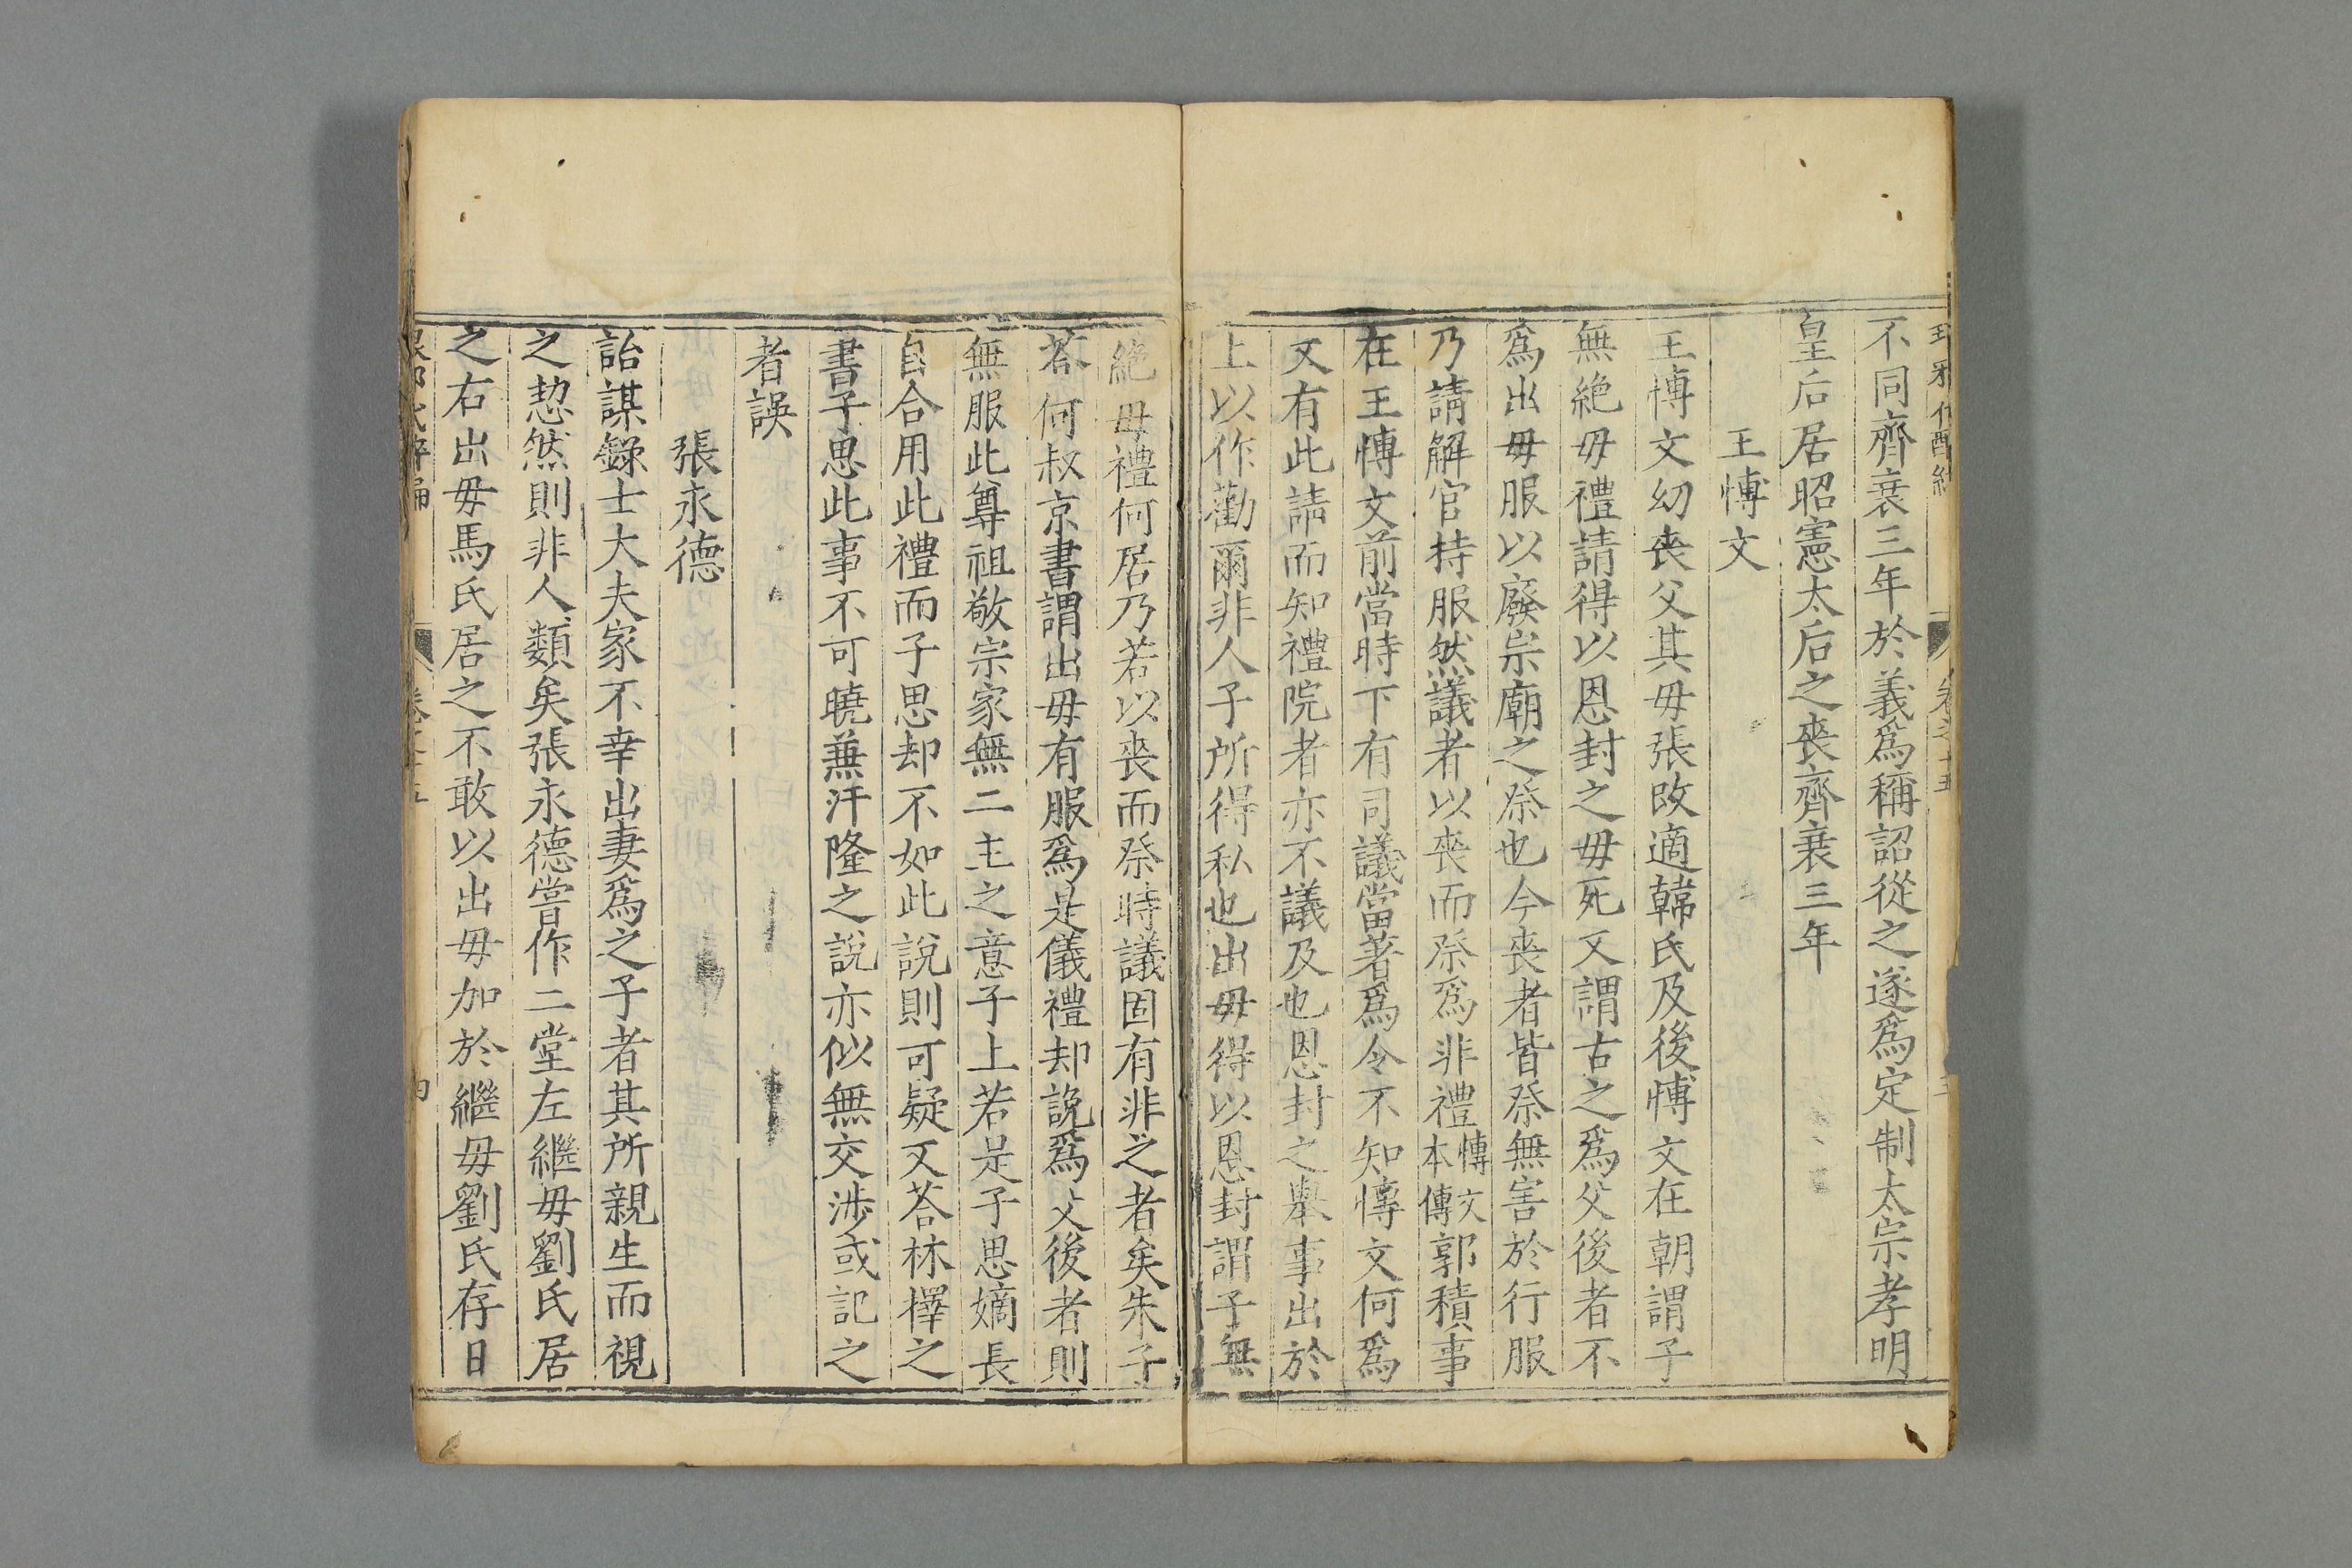 不同齊衰三年於義爲稱詔從之遂爲定制太宗孝明
皇后居昭憲太后之喪齊衰三年
王博文
王博文幼丧父其毋張改適韓氏及後博文在朝謂子
無絶毋禮請得以恩封之毋死又謂古之爲父後者不
爲出毋服以廢宗廟之祭也今丧者皆祭無害於行服
乃請解官持服然議者以喪而祭爲非禮博文本傳郭積事
在王博文前當時下有司議當著爲令不知博文何爲
又有此請而知禮院者亦不議及也恩封之舉事出於
上以作勸爾非人子所得私也出毋得以恩封謂子無
絶毋禮何居乃若以丧而祭時議固有非之者矣朱子
答何叔京書謂出毋有服爲是儀禮却說爲父後者則
無服此尊祖敬宗家無二主之意子上若是子思嫡長
自合用此禮而子思却不如此說則可疑又荅林擇之
書子思此事不可曉兼汙隆之說亦似無交涉或記之
者誤
張永德
詒謀錄士大夫家不幸出妻爲之子者其所親生而視
之恝然則非人類矣張永德嘗作二堂左繼毋劉氏居
之右出毋馬氏居之不敢以出毋加於繼毋劉氏存日